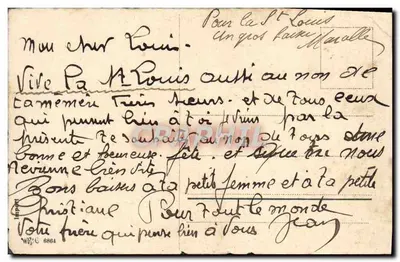 Pour la St Louis
un gros baiser
Mon cher Louis.
Vive la St Louis aussi au non de
ta mémère frères sœurs. et de tous ceux
qui pensent bien à toi je viens par la
présente te souhaiter au non de tous une
bonne et heureuse fête. et que tu nous
revienne bien vite
Bons baisers a ta petite femme et à ta petite
Christiane Pour tout le monde
Votre frère qui pense bien à vous Jean